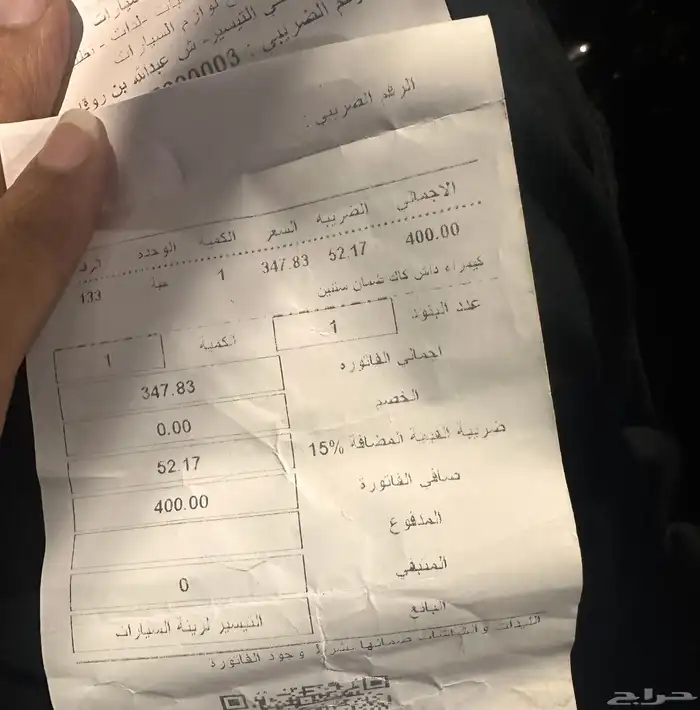 سيارات
لوازم السيارات
ي التيسير - ش عبدالله بن رو
م الضريبي : 00003
الرقم الضريبي :
الاجمالي الضريبه السعر الكمية الوحده الرق
400.00 52.17 347.83 1 حبة 133
كيمراء داش كاك ضمان سنتين
عدد البنود 1 الكمية 1
اجمالي الفاتوره 347.83
الخصم 0.00
ضريبة القيمة المضافة %15 52.17
صافي الفاتورة 400.00
المدفوع
المتبقي 0
البائع التيسير لزينة السيارات
الليدات و الشاشات ضمانها بشرط وجود الفاتورة
حراج